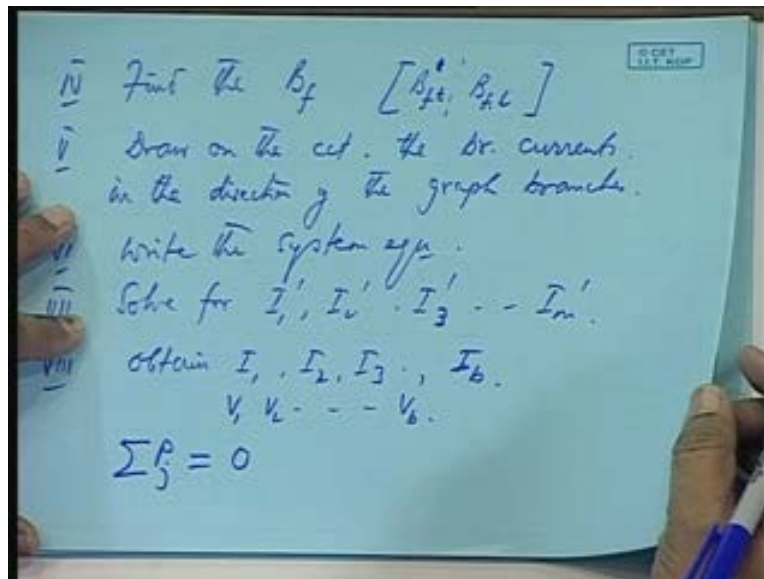 © CET
I.I.T. KGP
IV Find the B_f [B_ft ⋮ B_fl]
V Draw on the cct. the br. currents.
in the direction of the graph branches.
VI Write the system eqn.
VII Solve for I_1', I_2' . I_3' . - - I_m'.
VIII obtain I_1 . I_2, I_3 . , I_b.
V_1 V_2 - - - - V_b.
∑ P_j = 0